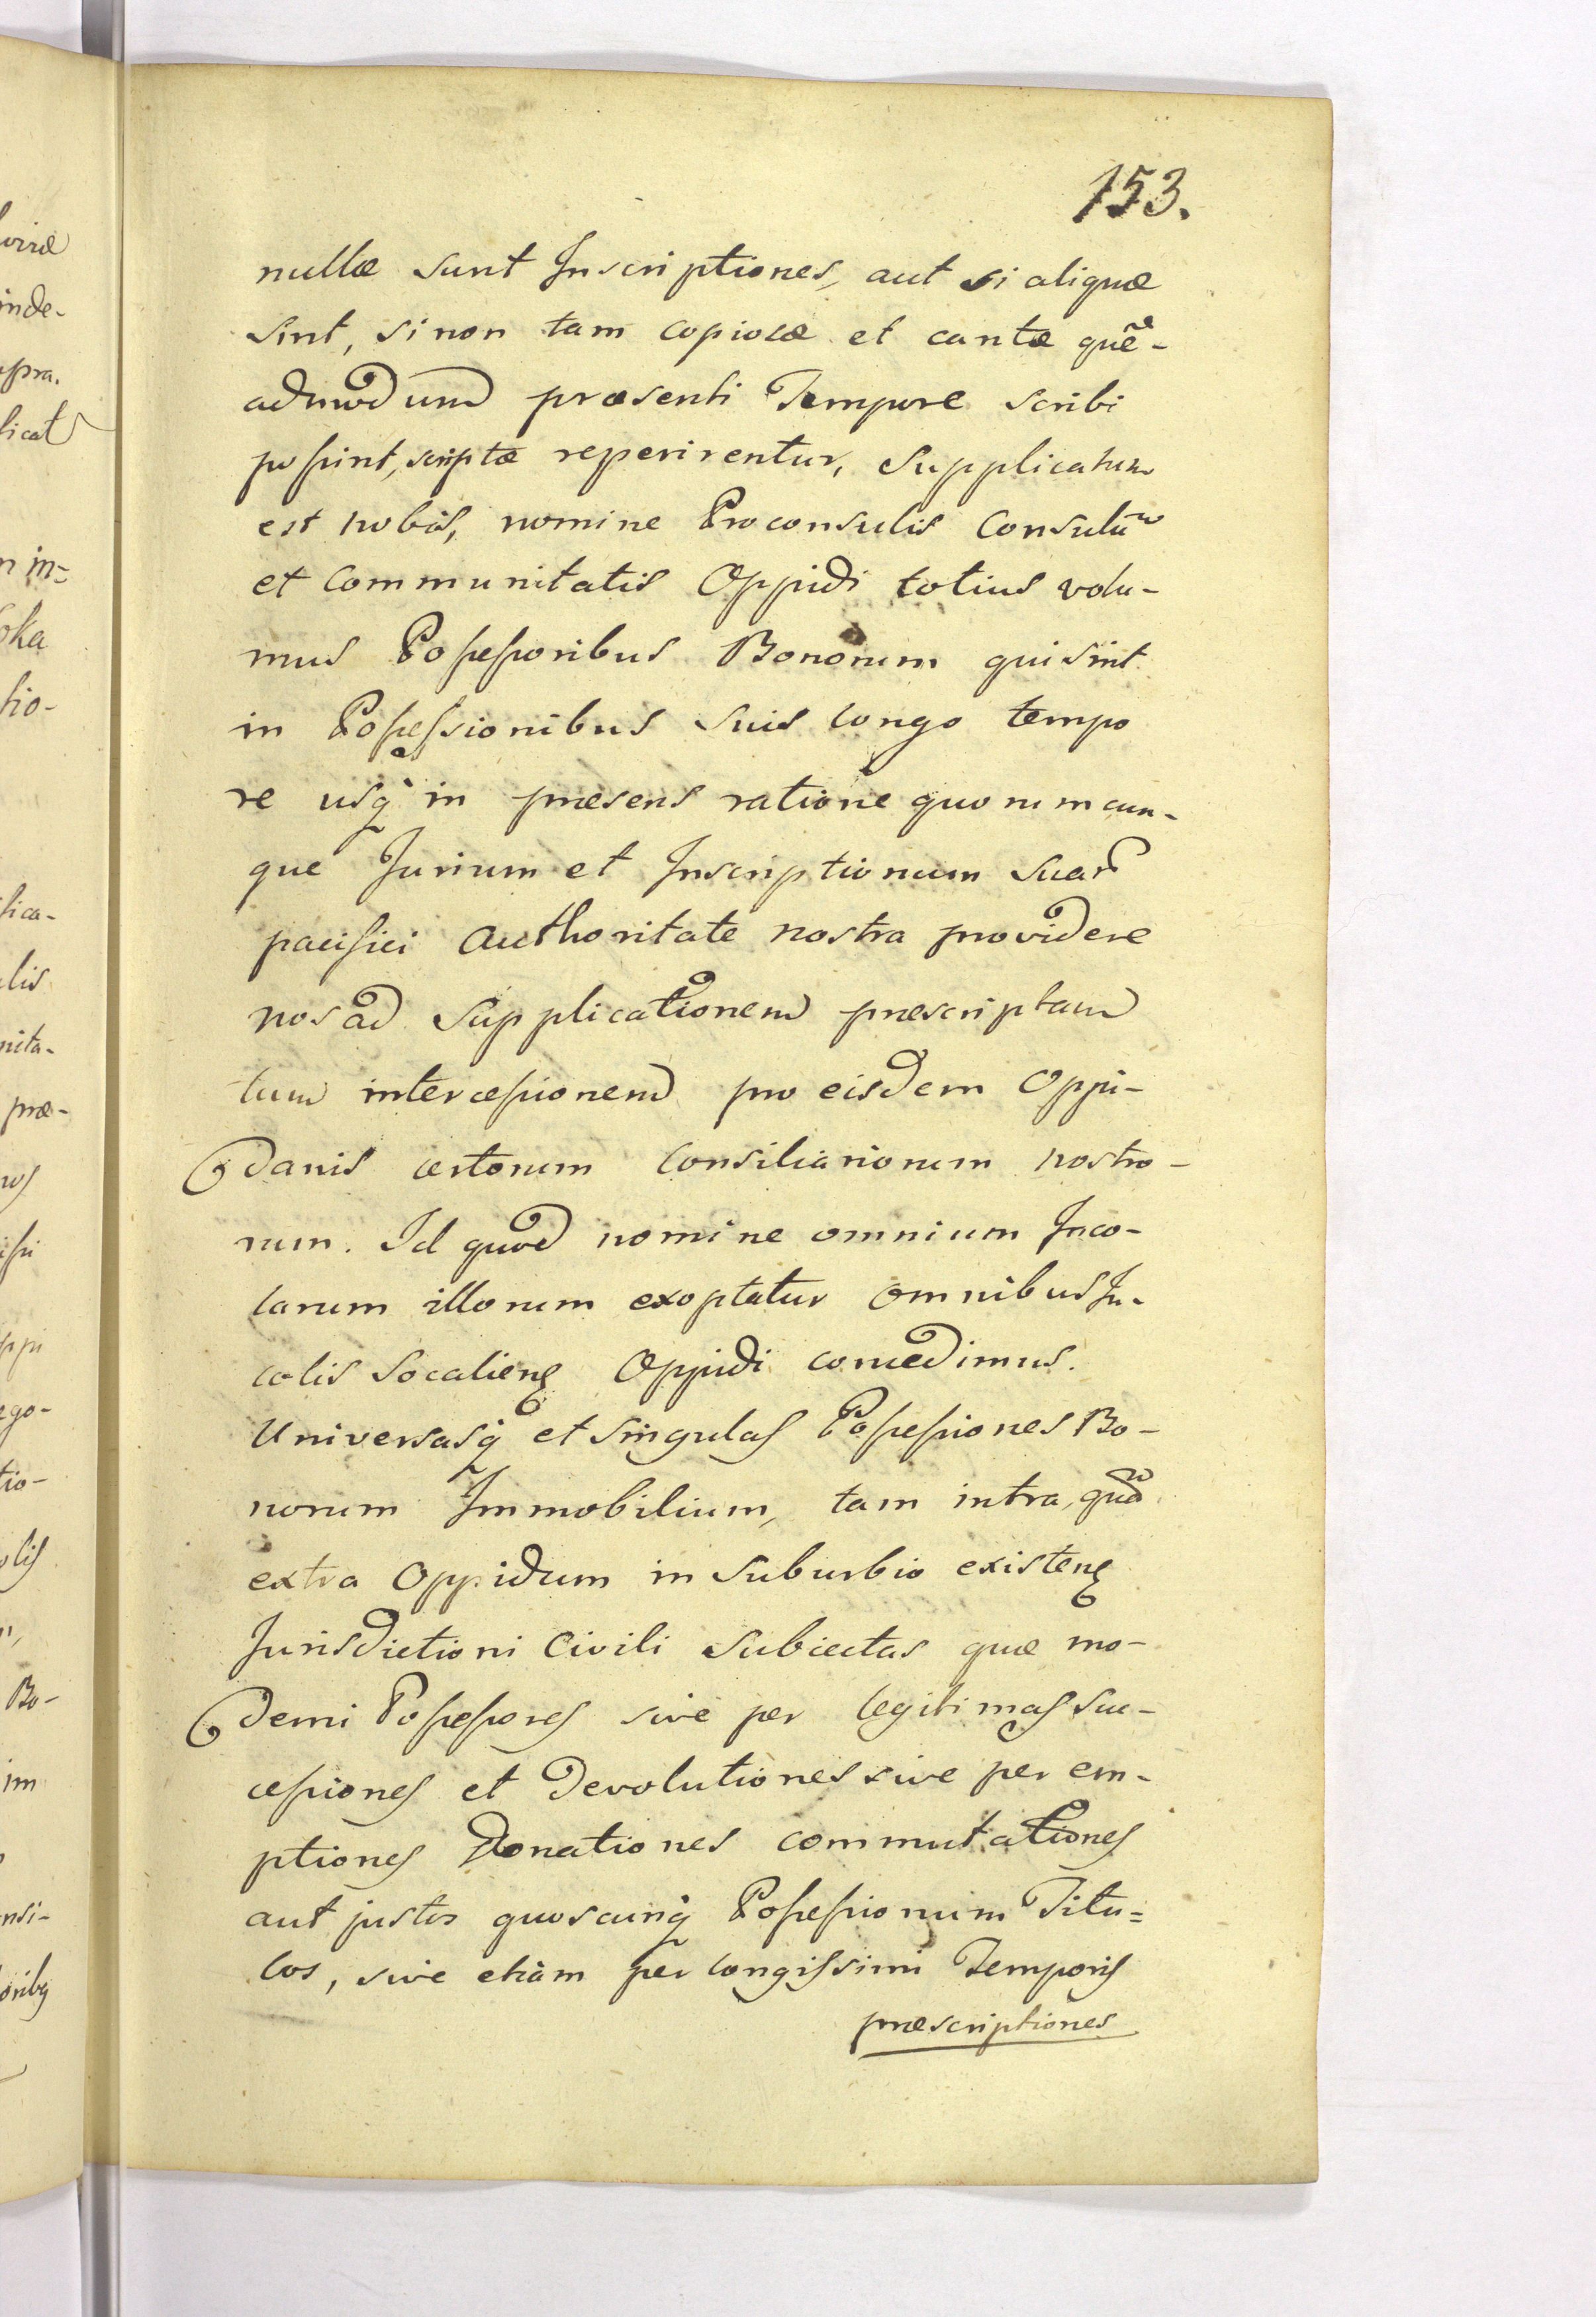 153.
nullæ sunt Inscriptiones, aut si aliquæ
sint, si non tam copiosæ et cautæ quē-
admodum præsenti Tempore scribi
possint, scriptæ reperirentur, Supplicatum
est nobis, nomine Proconsulis Consulū
et Communitatis Oppidi totius volu-
mus Possessoribus Bonorum qui sint
in Possessionibus suis longo tempo
re usq in præsens ratione quorumcun-
que Jurium et Inscriptionum suar
pacifici Authoritate nostra providere
nos ad Supplicationem præscriptam
tum intercessionem pro eisdem Oppi-
danis certorum Consiliariorum nostro-
rum. Id quod nomine omnium Inco-
larum illorum exoptatur omnibus In-
colis Socaliens Oppidi concedimus.
Universasq et singulas Possessiones Bo-
norum Immobilium, tam intra, quā
extra Oppidum in Suburbio existen
Jurisdictioni Civili subiectas quæ mo-
derni Possessores sive per legitimas suc-
cessiones et Devolutiones sive per em-
ptiones Donationes commutationes
aut justos quoscunq Possessionum Titu=
los, sive etiam per longissimi Temporis
præscriptiones